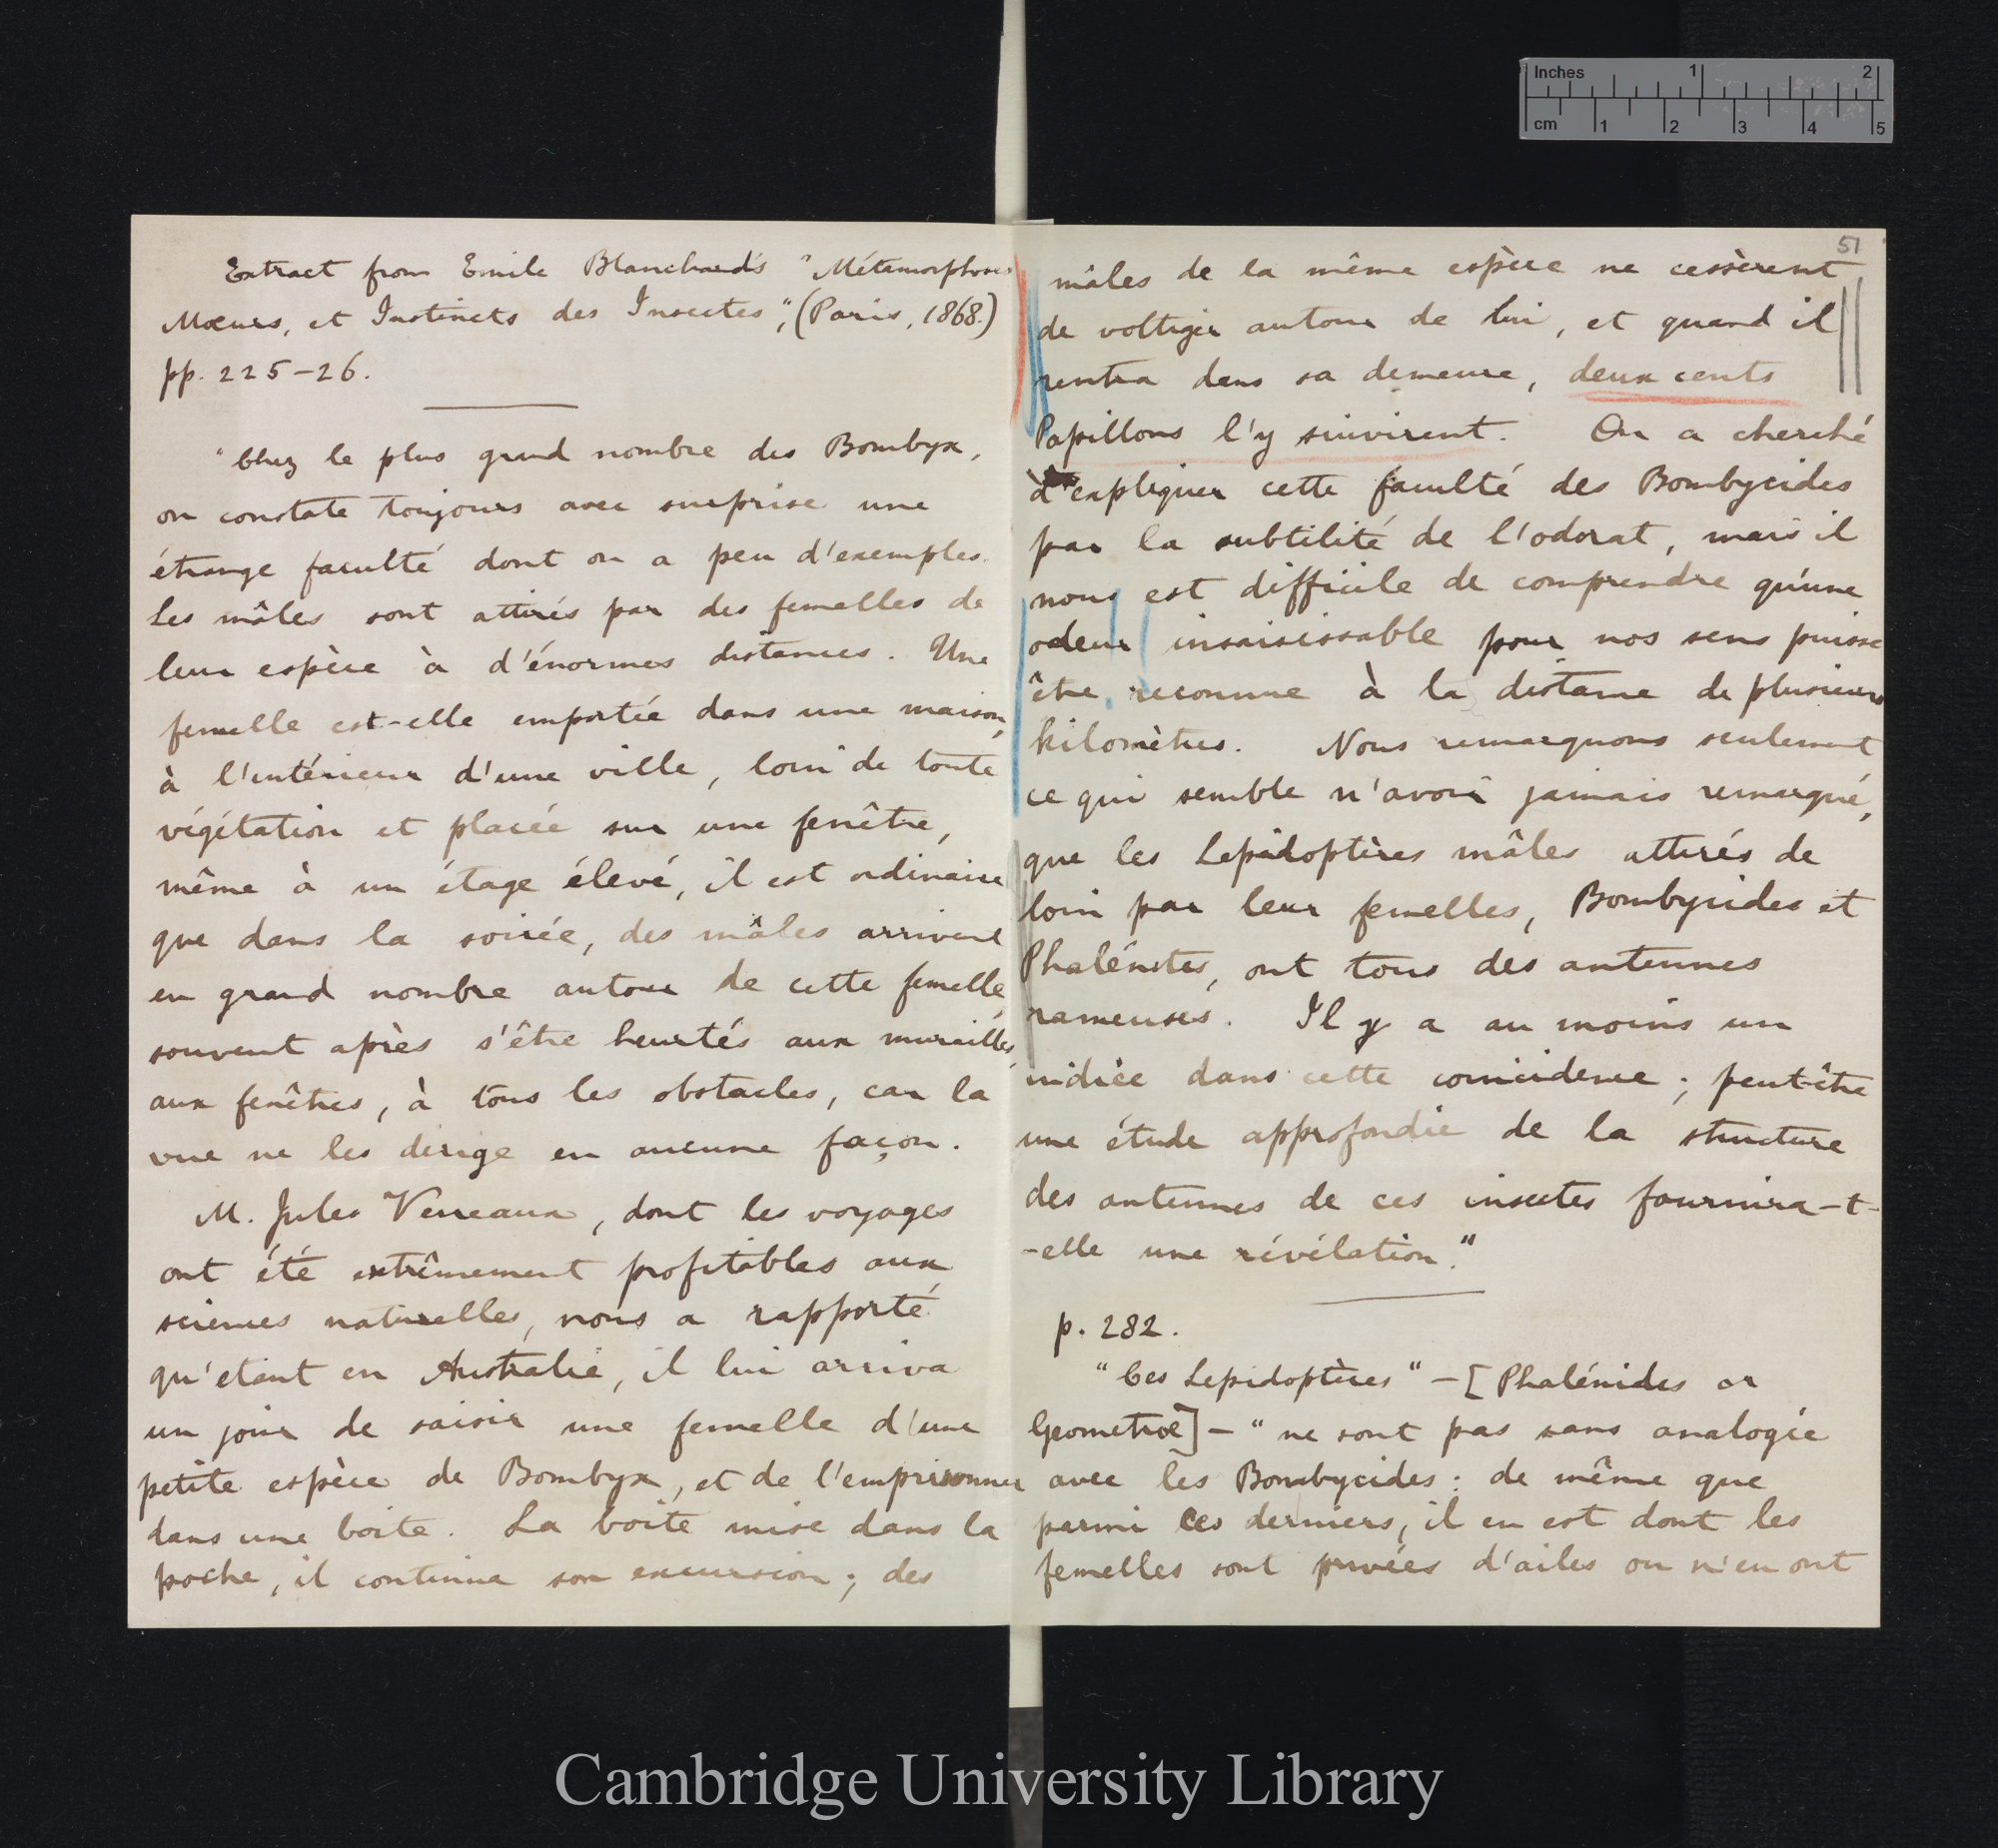 Extract from Emile Blanchard's "Métamorphoses
Mœurs, et Instincts des Insectes", (Paris, 1868.)
pp. 225-26.
"Chez le plus grand nombre des Bombyx,
on constate toujours avec surprise une
étrange faculté dont on a peu d'exemples.
Les mâles sont attirés par des femelles de
leur espèce à d'énormes distances. Une
femelle est-elle emportée dans une maison,
à l'intérieur d'une ville, loin de toute
végétation et placée sur une fenêtre,
même à un étage élevé, il est ordinaire
que dans la soirée, des mâles arrivent
en grand nombre autour de cette femelle,
souvent après s'être heurtés aux murailles,
aux fenêtres, à tous les obstacles, car la
vue ne les dirige en aucune façon.
M. Jules Verreaux, dont les voyages
ont été extrêmement profitables aux
sciences naturelles, nous a rapporté
qu'etant en Australie, il lui arriva
un jour de saisir une femelle d'une
petite espèce de Bombyx, et de l'emprisonner
dans une boite. La boîte mise dans la
poche, il continua son excursion; des
51
mâles de la même espèce ne cessèrent
de voltiger autour de lui, et quand il
rentra dans sa demeure, deux cents
Papillons l'y suivirent. On a cherché
d'expliquer cette faculté des Bombycides
par la subtilité de l'odorat, mais il
nous est difficile de comprendre qu'une
odeur insaisissable pour nos sens puisse
être reconnue à la distance de plusieurs
kilomètres. Nous remarquons seulement
ce qui semble n'avoir jamais remarqué,
que les Lepidoptères mâles attirés de
loin par leur femelles, Bombycides et
Phalénites, ont tous des antennes
rameuses. Il y a au moins un
indice dans cette coincidence; peut-être
une étude approfondie de la structure
des antennes de ces insectes fournira-t-
-elle une révélation."
p. 282.
"Ces Lepidoptères" - [Phalénides or
Geometræ] - "ne sont pas sans analogie
avec les Bombycides: de même que
parmi ces derniers, il en est dont les
femelles sont privées d'ailes ou n'en ont
Inches 1 2
cm 1 2 3 4 5
Cambridge University Library